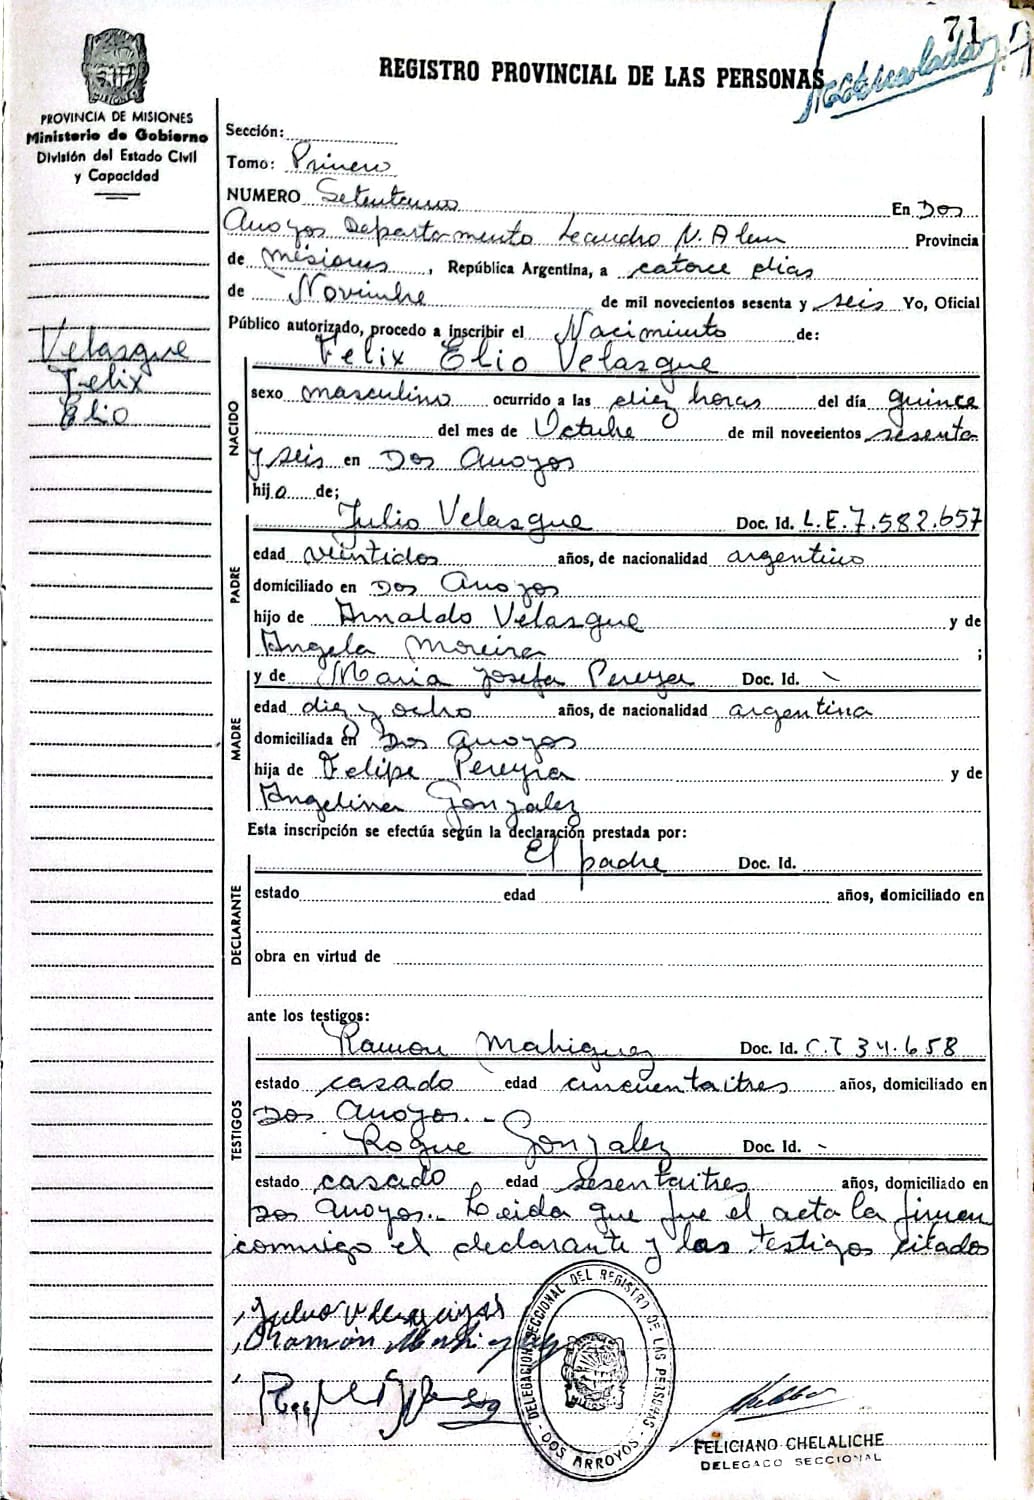 71
REGISTRO PROVINCIAL DE LAS PERSONAS
PROVINCIA DE MISIONES
Ministerio de Gobierno
División del Estado Civil
y Capacidad
Sección:
Tomo: Primero
NUMERO Setentauno En Dos
Arroyos Departamento Leandro N. Alem Provincia
de Misiones, República Argentina, a catorce dias
de Noviembre de mil novecientos sesenta y seis Yo, Oficial
Público autorizado, procedo a inscribir el Nacimiento de:
Felix Elio Velasque
Velasque
Felix
Elio
NACIDO
sexo masculino ocurrido a las diez horas del día quince
del mes de Octubre de mil novecientos sesenta
y seis en Dos Arroyos
hijo de;
PADRE
Julio Velasque Doc. Id. L.E.7.582.657
edad veintidos años, de nacionalidad argentino
domiciliado en Dos Arroyos
hijo de Arnaldo Velasque y de
Angela Moreira ;
MADRE
y de Maria Josefa Pereyra Doc. Id. -
edad diez y ocho años, de nacionalidad argentina
domiciliada en Dos Arroyos
hija de Felipe Pereyra y de
Angelina Gonzalez
Esta inscripción se efectúa según la declaración prestada por:
DECLARANTE
El padre Doc. Id.
estado edad años, domiciliado en
obra en virtud de
ante los testigos:
TESTIGOS
Ramon Doc. Id. C.I 34.658
estado casado edad cincuentaitres años, domiciliado en
Dos Arroyos.-
Roque Gonzalez Doc. Id. -
estado casado edad sesentaitres años, domiciliado en
Dos Arroyos.- Leida que fue el acta la firman
conmigo el declarante y los testigos citados
DELEGACION SECCIONAL DEL REGISTRO DE LAS PERSONAS
- DOS ARROYOS -
FELICIANO CHELALICHE
DELEGADO SECCIONAL